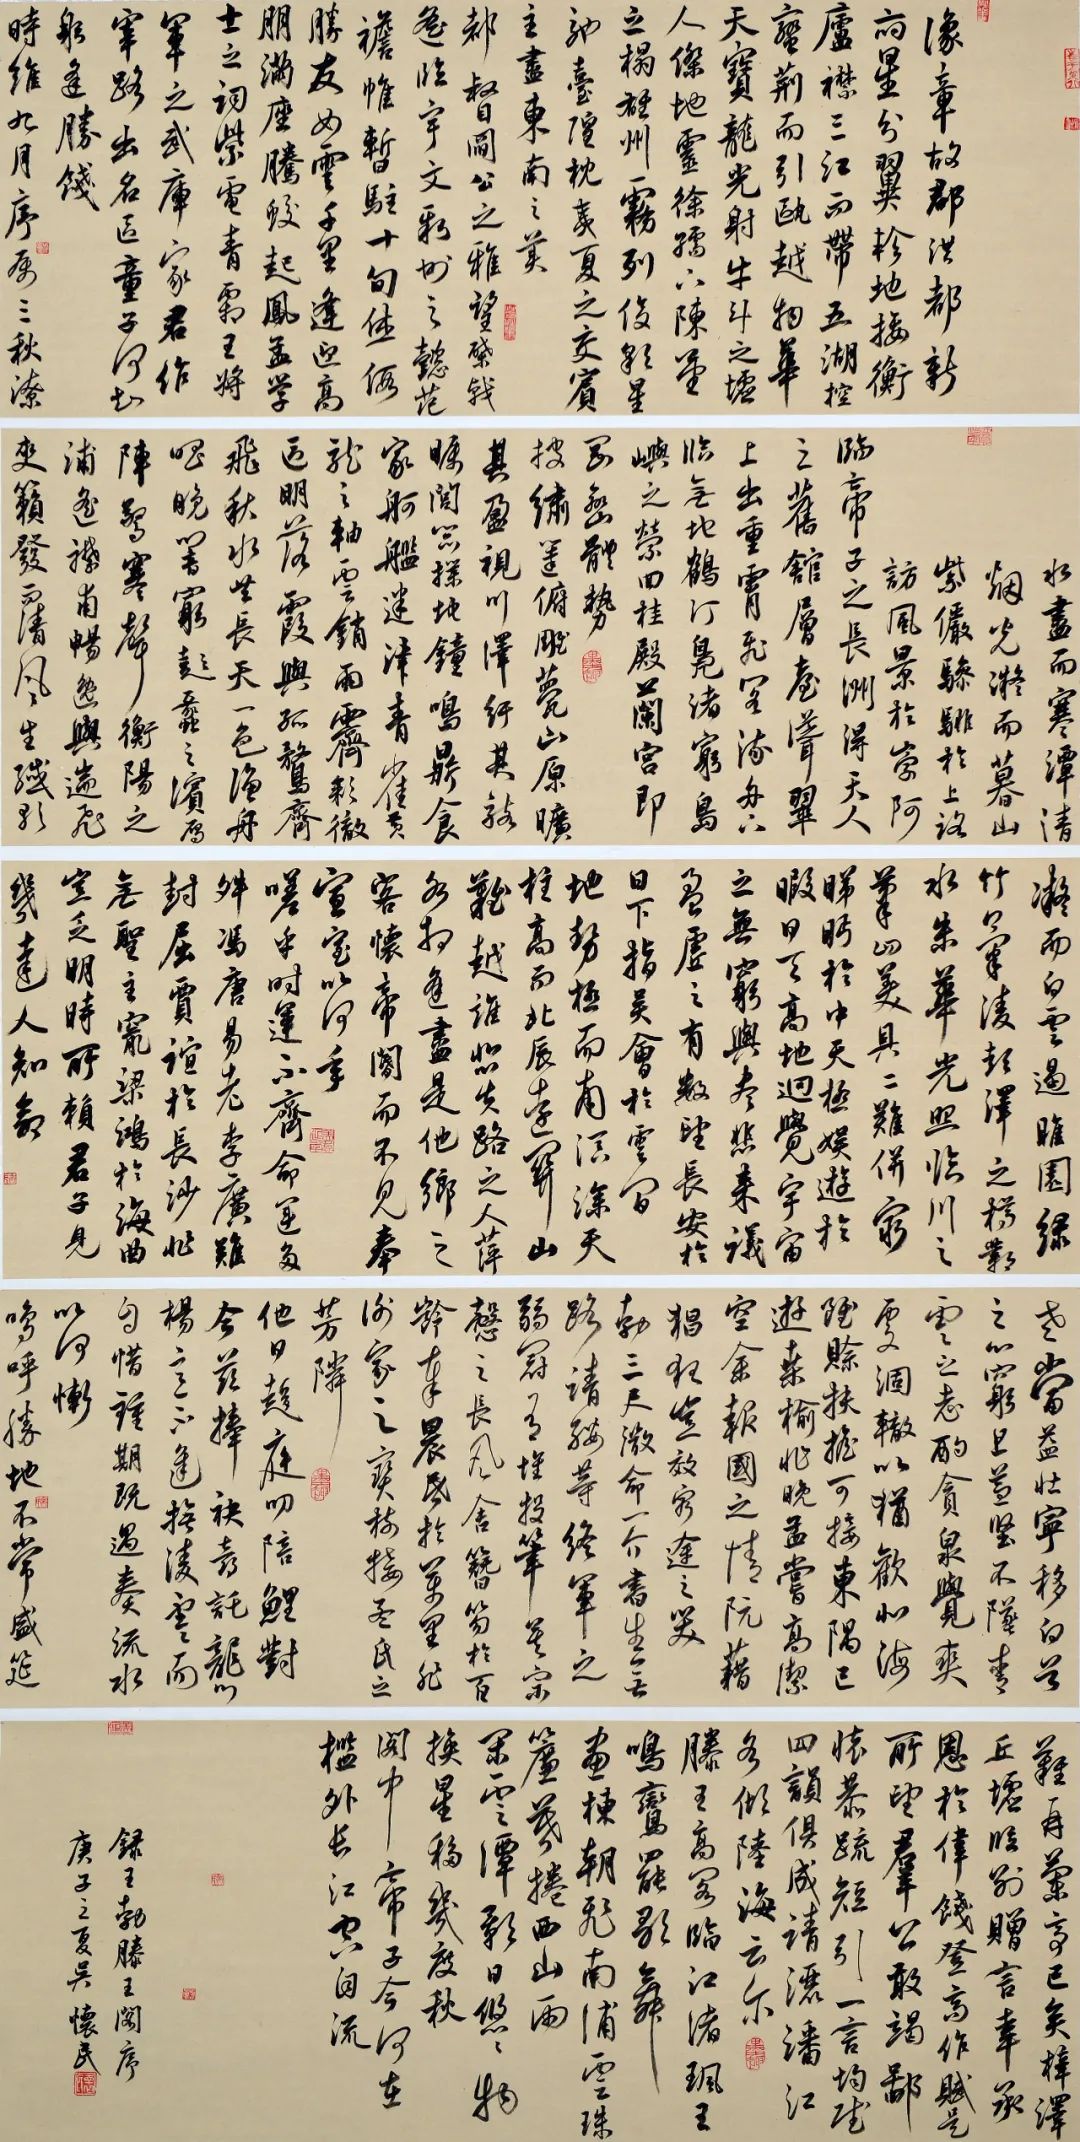 豫章故郡洪都新
府星分翼軫地接衡
廬襟三江而帶五湖控
蠻荊而引甌越物華
天寶龍光射牛斗之墟
人傑地靈徐孺下陳蕃
之榻雄州霧列俊彩星
馳臺隍枕夷夏之交賓
主盡東南之美
都督閻公之雅望棨戟
遙臨宇文新州之懿范
襜帷暫駐十旬休假
勝友如雲千里逢迎高
朋滿座騰蛟起鳳孟学
士之詞紫電青霜王將
軍之武庫家君作
宰路出名区童子何知
躬逢勝餞
時維九月序屬三秋潦
水盡而寒潭清
烟光凝而暮山
紫儼驂騑於上路
訪風景於崇阿
臨帝子之長洲得天人
之舊館層臺聳翠
上出重霄飛閣流丹下
臨無地鶴汀鳧渚窮島
嶼之縈回桂殿蘭宮即
岡巒體勢
披繡闥俯雕甍山原曠
其盈視川澤紆其駭
矚閭閻撲地鐘鳴鼎食
家舸艦迷津青雀黃
龍之軸雲銷雨霽彩徹
區明落霞與孤鶩齊
飛秋水共長天一色漁舟
唱晚響窮彭蠡之濱雁
陣驚寒聲衡陽之
浦遙襟甫暢逸興遄飛
爽籟發而清風生纖歌
凝而白雲遏睢園綠
竹氣凌彭澤之樽鄴
水朱華光照臨川之
筆四美具二難併窮
睇眄於中天極娛遊於
暇日天高地迥覺宇宙
之無窮興盡悲來識
盈虛之有數望長安於
日下指吳會於雲間
地勢極而南溟深天
柱高而北辰遠關山
難越誰悲失路之人萍
水相逢盡是他鄉之
客懷帝閽而不見奉
宣室以何年
嗟乎時運不齊命運多
舛馮唐易老李廣難
封屈賈誼於長沙非
無聖主竄梁鴻於海曲
豈乏明時所賴君子見
幾達人知命
老當益壯寧移白首
之心窮且益堅不墜青
雲之志酌貪泉覺爽
處涸轍以猶歡北海
雖賒扶搖可接東隅已
遊桑榆非晚孟嘗高潔
空余報國之情阮藉
猖狂豈效窮途之哭
勃三尺微命一介書生無
路請纓等終軍之
弱冠有懷投筆慕宗
愨之長風舍簪笏於百
齡奉晨昏於萬里非
謝家之寶樹接孟氏之
芳隣
他日趨庭叨陪鯉對
今茲捧袂喜託龍門
楊意不逢撫凌雲而
自惜鍾期既遇奏流水
以何慚
嗚呼勝地不常盛筵
難再蘭亭已矣梓澤
丘墟臨別贈言幸承
恩於偉餞登高作賦是
所望群公敢竭鄙
懷恭疏短引一言均賦
四韻俱成請灑潘江
各傾陸海云尔
滕王高閣臨江渚珮玉
鳴鸞罷歌舞
畫棟朝飛南浦雲珠
簾暮捲西山雨
閑雲潭影日悠悠物
換星移幾度秋
閣中帝子今何在
檻外長江空自流
録王勃滕王閣序
庚子之夏吴懷民